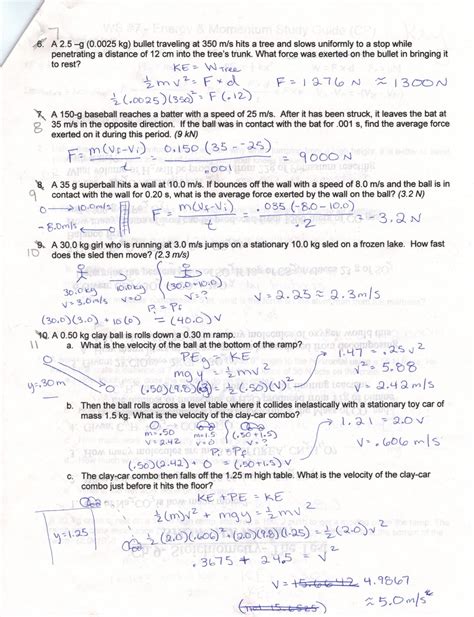 WS #7 - Energy & Momentum Study Guide (CP)
7
6. A 2.5 –g (0.0025 kg) bullet traveling at 350 m/s hits a tree and slows uniformly to a stop while
penetrating a distance of 12 cm into the tree's trunk. What force was exerted on the bullet in bringing it
to rest?
KE = W tree
½mv² = F × d F = 1276 N ≈ 1300N
½(.0025)(350)² = F(.12)
7. A 150-g baseball reaches a batter with a speed of 25 m/s. After it has been struck, it leaves the bat at
8 35 m/s in the opposite direction. If the ball was in contact with the bat for .001 s, find the average force
exerted on it during this period. (9 kN)
F = m(Vf-Vi)/t = 0.150 (35 - -25)/.001 = 9000 N
8. A 35 g superball hits a wall at 10.0 m/s. If bounces off the wall with a speed of 8.0 m/s and the ball is in
9 contact with the wall for 0.20 s, what is the average force exerted by the wall on the ball? (3.2 N)
O→10.0m/s
-8.0m/s ←O
F = m(Vf-Vi)/t = .035 (-8.0 - 10.0)/.2 = -3.2 N
9. A 30.0 kg girl who is running at 3.0 m/s jumps on a stationary 10.0 kg sled on a frozen lake. How fast
10 does the sled then move? (2.3 m/s)
30.0kg 10.0kg (30.0+10.0)
v=3.0m/s v=0 v=?
Pi = Pf V = 2.25 ≈ 2.3 m/s
(30.0)(3.0) + 10(0) = (40.0)V
10. A 0.50 kg clay ball is rolls down a 0.30 m ramp.
11 a. What is the velocity of the ball at the bottom of the ramp?
PEg = KE → 1.47 = .25 v²
y=.30m mgy = ½mv² v² = 5.88
(.50)(9.8)(.3) = ½(.50)(V)² V = 2.42 m/s
b. Then the ball rolls across a level table where it collides inelastically with a stationary toy car of
mass 1.5 kg. What is the velocity of the clay-car combo?
m=.50 m=1.5 (.50+1.5) → 1.21 = 2.0V
v=2.42 v=0 v=?
Pi = Pf V = .606 m/s
(.50)(2.42) + 0 = (.50+1.5)V
c. The clay-car combo then falls off the 1.25 m high table. What is the velocity of the clay-car
combo just before it hits the floor?
KE + PE = KE
½(m)v² + mgy = ½mv²
y=1.25 ½(2.0)(.606)² + (2.0)(9.8)(1.25) = ½(2.0)v²
.3675 + 24.5 = v²
V = 4.9867
≈ 5.0 m/s